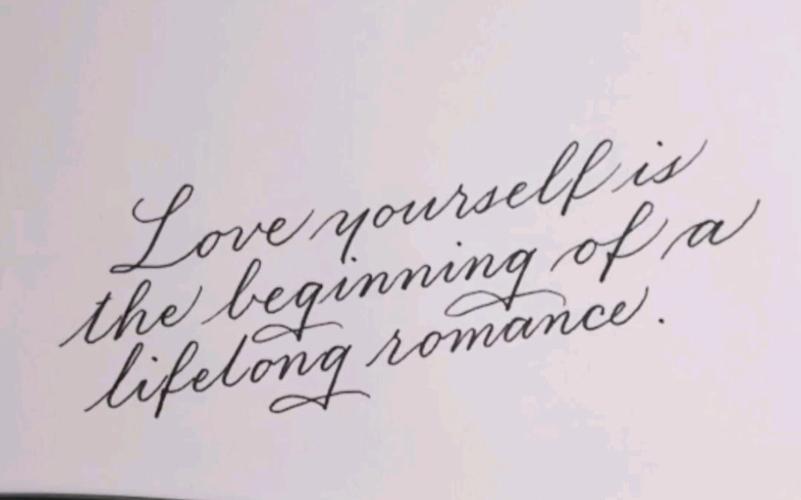 Love yourself is
the beginning of a
lifelong romance.